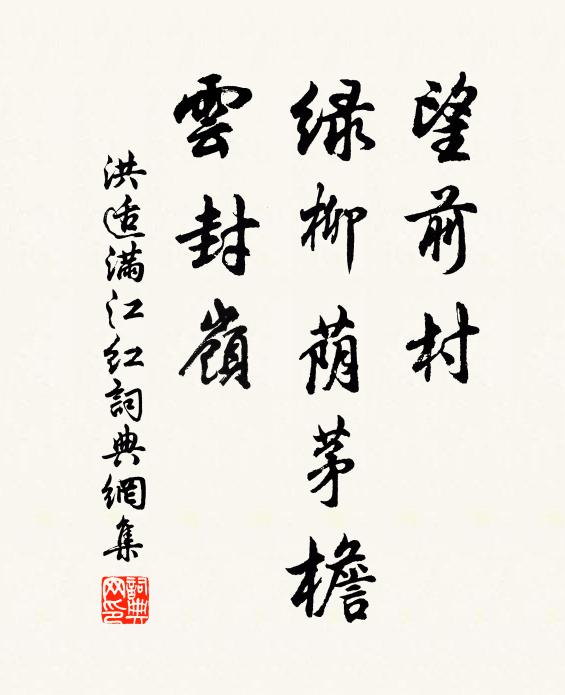 望前村
绿柳荫茅檐
雲封嶺
洪适滿江紅詞典網集
詞典网印